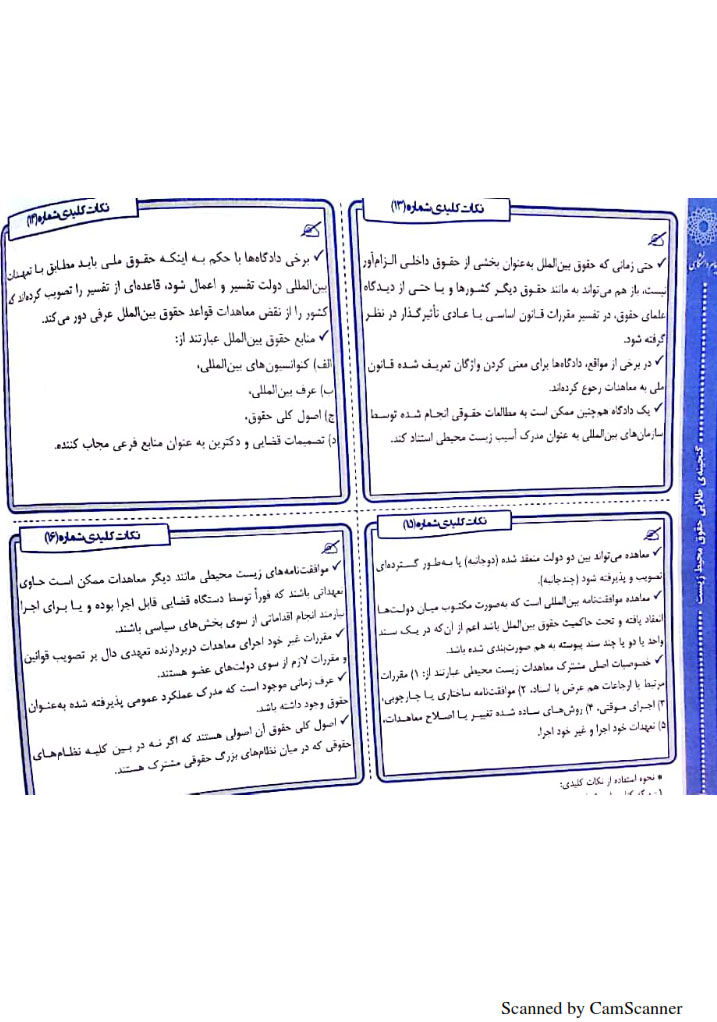 نکات کلیدی شماره (۱۳)
✓ حتی زمانی که حقوق بین‌الملل به‌عنوان بخشی از حقوق داخلی الزام‌آور
نیست، باز هم می‌تواند به مانند حقوق دیگر کشورها و یا حتی از دیدگاه
علمای حقوق، در تفسیر مقررات قانون اساسی یا عادی تأثیرگذار در نظر
گرفته شود.
✓ در برخی از مواقع، دادگاه‌ها برای معنی کردن واژگان تعریف شده قانون
ملی به معاهدات رجوع کرده‌اند.
✓ یک دادگاه هم‌چنین ممکن است به مطالعات حقوقی انجام شده توسط
سازمان‌های بین‌المللی به عنوان مدرک آسیب زیست محیطی استناد کند.
نکات کلیدی شماره (۱۴)
✓ برخی دادگاه‌ها با حکم به اینکه حقوق ملی باید مطابق با تعهدات
بین‌المللی دولت تفسیر و اعمال شود، قاعده‌ای از تفسیر را تصویب کرده‌اند که
کشور را از نقض معاهدات قواعد حقوق بین‌الملل عرفی دور می‌کند.
✓ منابع حقوق بین‌الملل عبارتند از:
الف) کنوانسیون‌های بین‌المللی،
ب) عرف بین‌المللی،
ج) اصول کلی حقوق،
د) تصمیمات قضایی و دکترین به عنوان منابع فرعی مجاب کننده.
نکات کلیدی شماره (۱۵)
✓ معاهده می‌تواند بین دو دولت منعقد شده (دوجانبه) یا به‌طور گسترده‌ای
تصویب و پذیرفته شود (چندجانبه).
✓ معاهده موافقت‌نامه بین‌المللی است که به‌صورت مکتوب میان دولت‌ها
انعقاد یافته و تحت حاکمیت حقوق بین‌الملل باشد اعم از آن‌که در یک سند
واحد یا دو یا چند سند پیوسته به هم صورت‌بندی شده باشد.
✓ خصوصیات اصلی مشترک معاهدات زیست محیطی عبارتند از: ۱) مقررات
مرتبط با ارجاعات هم عرض با اسناد، ۲) موافقت‌نامه ساختاری یا چارچوبی،
۳) اجرای موقتی، ۴) روش‌های ساده شده تغییر یا اصلاح معاهدات،
۵) تعهدات خود اجرا و غیر خود اجرا.
نکات کلیدی شماره (۱۶)
✓ موافقت‌نامه‌های زیست محیطی مانند دیگر معاهدات ممکن است حاوی
تعهداتی باشند که فوراً توسط دستگاه قضایی قابل اجرا بوده و یا برای اجرا
نیازمند انجام اقداماتی از سوی بخش‌های سیاسی باشند.
✓ مقررات غیر خود اجرای معاهدات دربردارنده تعهدی دال بر تصویب قوانین
و مقررات لازم از سوی دولت‌های عضو هستند.
✓ عرف زمانی موجود است که مدرک عملکرد عمومی پذیرفته شده به‌عنوان
حقوق وجود داشته باشد.
✓ اصول کلی حقوق آن اصولی هستند که اگر نه در بین کلیه نظام‌های
حقوقی که در میان نظام‌های بزرگ حقوقی مشترک هستند.
* نحوه استفاده از نکات کلیدی:
گنجینه‌ی طلایی حقوق محیط زیست
Scanned by CamScanner